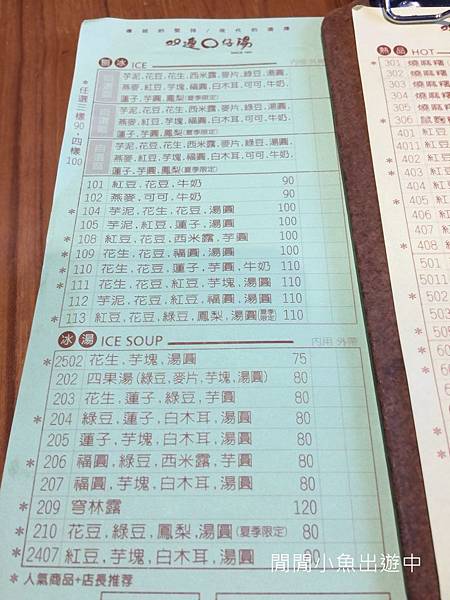 傳統的堅持/現代的美味
四連O仔湯
刨冰 ICE 內用 外帶
＊任選三樣90，四樣100
自選區 芋泥.花豆.花生.西米露.麥片.綠豆.湯圓.
燕麥.紅豆.芋塊.福圓.白木耳.可可.牛奶.
蓮子.芋圓.鳳梨(夏季限定)
自選區 芋泥.花豆.花生.西米露.麥片.綠豆.湯圓.
燕麥.紅豆.芋塊.福圓.白木耳.可可.牛奶.
蓮子.芋圓.鳳梨(夏季限定)
自選區 芋泥.花豆.花生.西米露.麥片.綠豆.湯圓.
燕麥.紅豆.芋塊.福圓.白木耳.可可.牛奶.
蓮子.芋圓.鳳梨(夏季限定)
101 紅豆.花豆.牛奶 90
102 燕麥.可可.牛奶 90
＊104 芋泥.花生.花豆.湯圓 100
105 芋泥.紅豆.蓮子.湯圓 100
＊108 紅豆.花豆.西米露.芋圓 100
＊109 花生.花豆.福圓.湯圓 100
＊110 花生.花豆.蓮子.芋圓.牛奶 110
＊111 花生.花豆.紅豆.芋塊.湯圓 110
112 芋泥.花豆.紅豆.福圓.湯圓 110
＊113 紅豆.花豆.綠豆.鳳梨.湯圓(夏季限定) 110
冰湯 ICE SOUP 內用 外帶
＊2502 花生.芋塊.湯圓 75
202 四果湯(綠豆.麥片.芋塊.湯圓) 80
203 花生.蓮子.綠豆.芋圓 80
＊204 綠豆.蓮子.白木耳.湯圓 80
205 蓮子.芋塊.白木耳.湯圓 80
＊206 福圓.綠豆.西米露.芋圓 80
207 福圓.芋塊.白木耳.湯圓 80
＊209 穹林露 120
＊210 花豆.綠豆.鳳梨.湯圓(夏季限定) 80
＊2407 紅豆.芋塊.白木耳.湯圓 80
＊人氣商品+店長推荐
熱品 HOT
301 燒麻糬
303 燒麻糬
305 燒麻糬
306 燒麻糬
401 紅豆
301 紅豆
404 紅豆
405 紅豆
406 紅豆
407 紅豆
408 紅
501
503
閒閒小魚出遊中